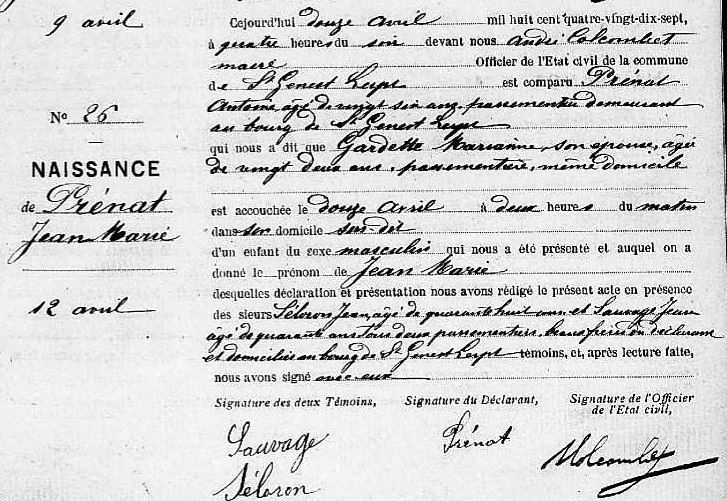 9 avril
Cejourd'hui douze avril mil huit cent quatre-vingt-dix-sept,
à quatre heures du soir devant nous André Colcombet
maire Officier de l'Etat civil de la commune
de St Genest Lerpt est comparu Prénat
Antoine âgé de vingt six ans, passementier demeurant
au bourg de St Genest Lerpt
qui nous a dit que Gardette Marianne, son épouse, âgée
de vingt deux ans, passementière, même domicile
est accouchée le douze avril à deux heures du matin
dans son domicile sus-dit
d'un enfant du sexe masculin qui nous a été présenté et auquel on a
donné le prénom de Jean Marie
desquelles déclaration et présentation nous avons rédigé le présent acte en présence
des sieurs Séloron Jean, âgé de quarante huit ans et Sauvage Jean
âgé de quarante ans tous deux passementiers, du déclarant
et domiciliés au bourg de St Genest Lerpt témoins, et, après lecture faite,
nous avons signé avec eux
No 26
NAISSANCE
de Prénat
Jean Marie
12 avril
Signature des deux Témoins, Signature du Déclarant, Signature de l'Officier
de l'Etat civil,
Sauvage Prénat AColcombet
Séloron